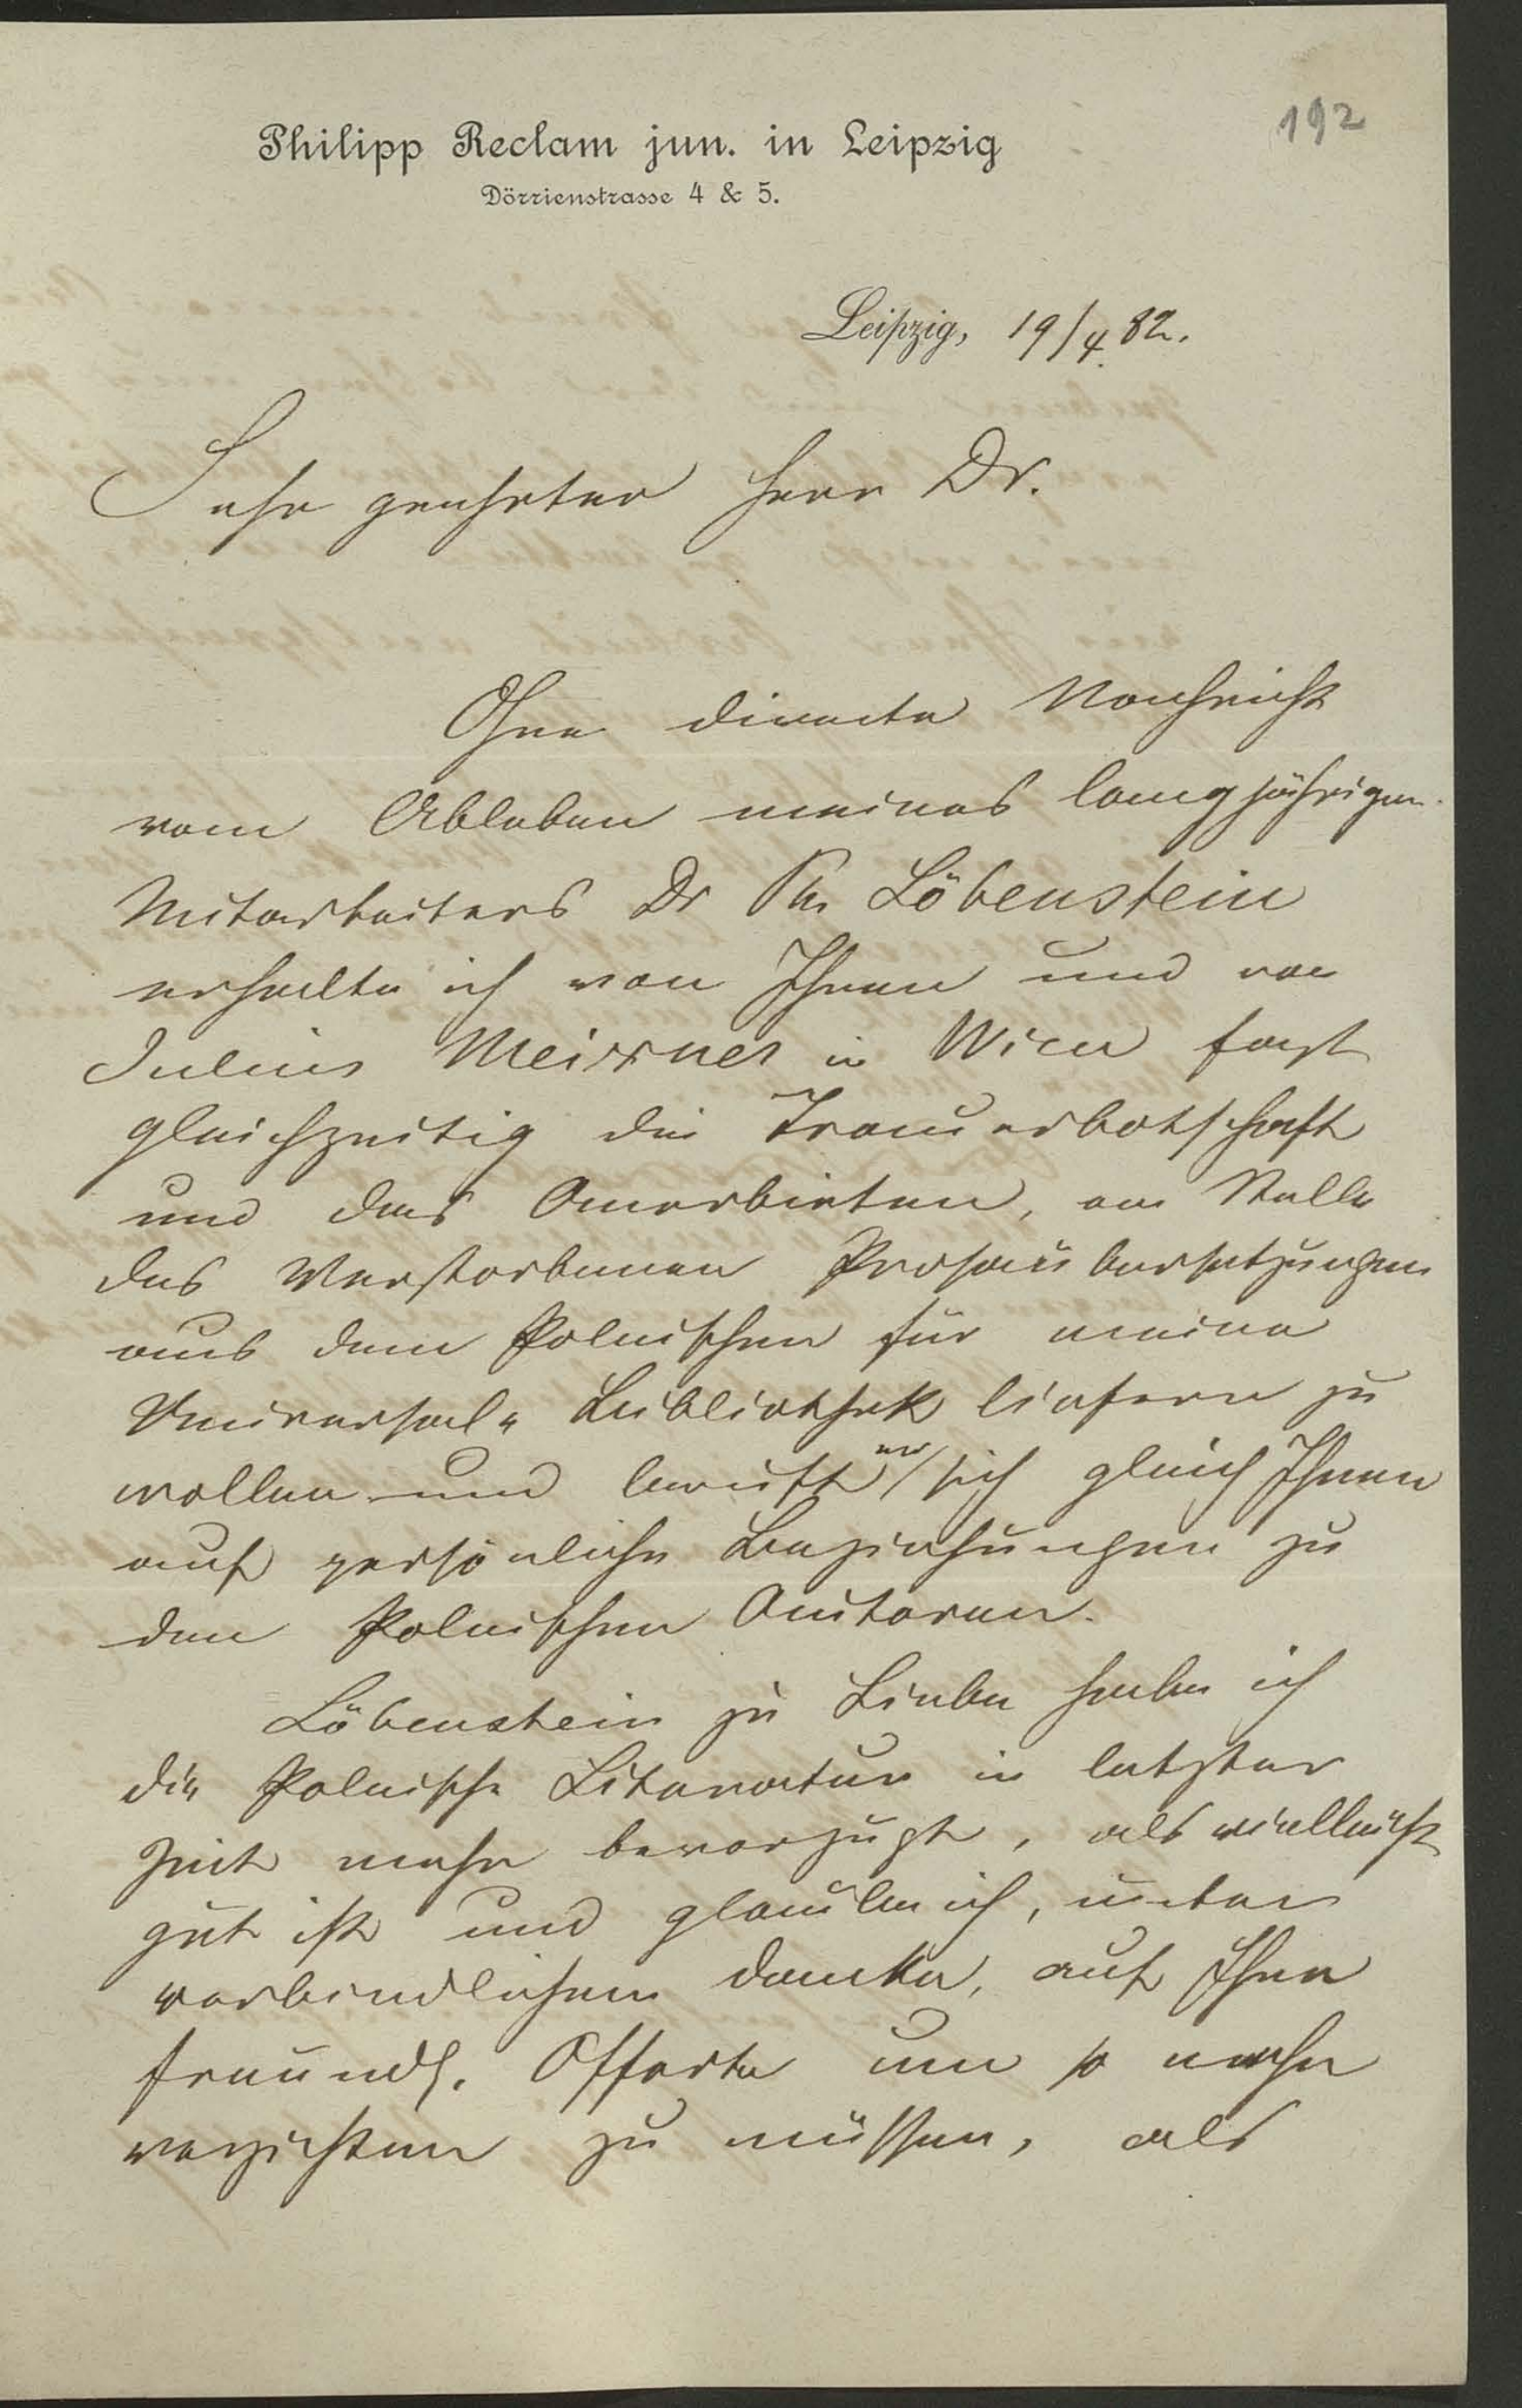 192
Philipp Reclam jun. in Leipzig
Dörrienstrasse 4 & 5.
Leipzig, 19/4. 82.
Sehr geehrter Herr Dr.
Ohne directe Nachricht
vom Ableben meines langjährigen
Mitarbeiters Dr Ph. Löbenstein
erhalte ich von Ihnen und von
Julius Meixner in Wien fast
gleichzeitig die Trauerbotschaft
und das Anerbieten, an Stelle
des Verstorbenen Prosaübersetzungen
aus dem Polnischen für meine
Universal-Bibliothek liefern zu
wollen und beruft er sich gleich Ihnen
auf persönliche Beziehungen zu
den Polnischen Autoren.
Löbenstein zu Liebe habe ich
die Polnische Literatur in letzter
Zeit mehr bevorzugt, als vielleicht
gut ist und glaube ich, unter
verbindlichem Danke, auf Ihre
freundl. Offerte um so mehr
verzichten zu müssen, als